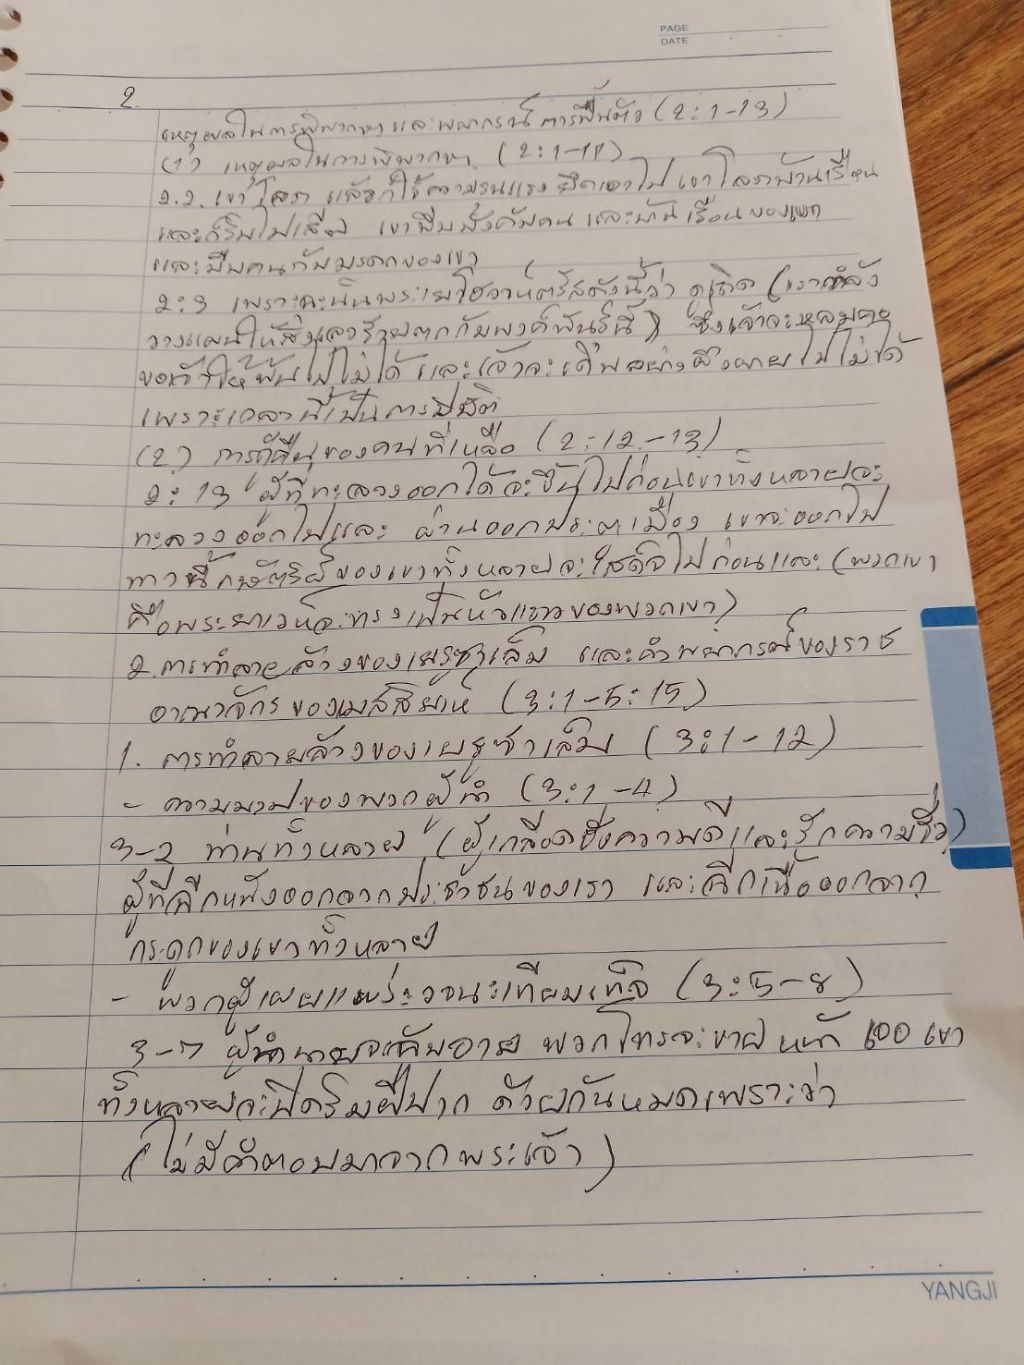 PAGE
DATE
2.
เหตุผลในการพิพากษา และพยากรณ์ การฟื้นตัว (2:1-13)
(1) เหตุผลในการพิพากษา (2:1-11)
2.2. เขาโลภ แล้วก็ใช้ความรุนแรง ยึดเอาไป เขาโลภบ้านเรือน
และก็ริบไปเสีย เขาบีบบังคับคน และบ้านเรือนของเขา
และบีบคนกับมรดกของเขา
2:3 เพราะฉะนั้นพระเยโฮวาห์ตรัสดังนี้ว่า ดูเถิด (เรากำลัง
วางแผนให้สิ่งเลวร้ายตกกับพงศ์พันธุ์นี้) ซึ่งเจ้าจะหลบคอ
ของเจ้าให้พ้นไปไม่ได้ และเจ้าจะเดินอย่างผึ่งผายไปไม่ได้
เพราะเวลานี้เป็นการวิบัติ
(2) การกู้คืนของคนที่เหลือ (2:12-13)
2:13 ผู้ที่ทะลวงออกได้จะขึ้นไปก่อนเขาทั้งหลายจะ
ทะลวงออกไปและ ผ่านออกประตูเมือง เขาจะออกไป
ทางนี้กษัตริย์ของเขาทั้งหลายจะเสด็จไปก่อนและ (พวกเขา
คือพระยาเวห์จะทรงเป็นหัวแถวของพวกเขา)
2. การทำลายล้างของเยรูซาเล็ม และคำพยากรณ์ของราช
อาณาจักรของเมสสิยาห์ (3:1-5:15)
1. การทำลายล้างของเยรูซาเล็ม (3:1-12)
- ความบาปของพวกผู้นำ (3:1-4)
3-2 ท่านทั้งหลาย (ผู้เกลียดชังความดีและรักความชั่ว)
ผู้ที่ฉีกหนังออกจากประชาชนของเรา และฉีกเนื้อออกจาก
กระดูกของเขาทั้งหลาย
- พวกผู้เผยแพร่วจนะเทียมเท็จ (3:5-8)
3-7 ผู้ทำนายจะอับอาย พวกโหรจะขายหน้า เออ เขา
ทั้งหลายจะปิดริมฝีปาก ด้วยกันหมดเพราะว่า
(ไม่มีคำตอบมาจากพระเจ้า)
YANGJI